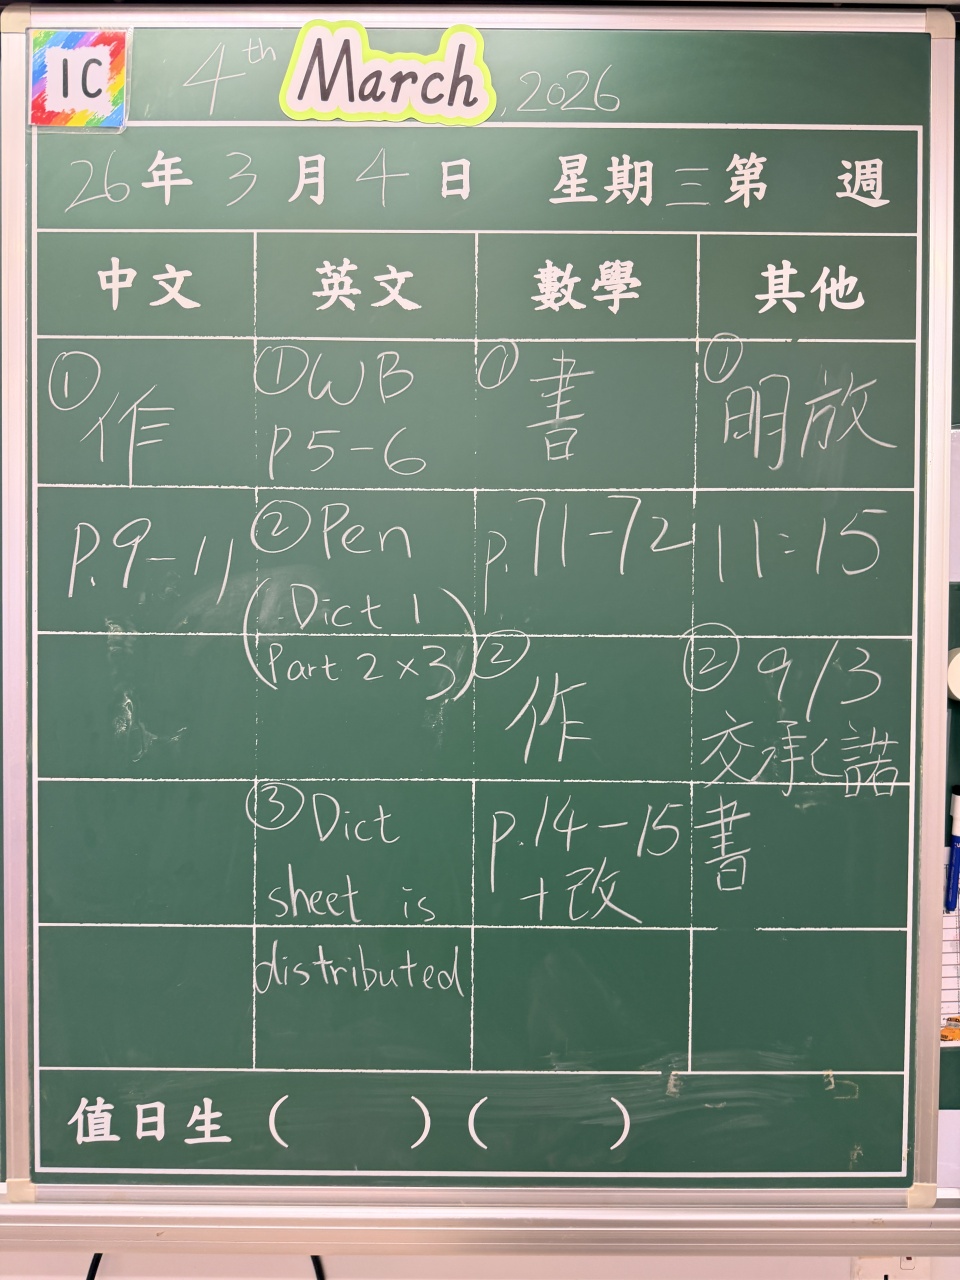 1C
4th March, 2026
26年3月4日 星期三第 週
中文 英文 數學 其他
①作
p.9-11
①WB
P5-6
②Pen
(Dict 1
Part 2×3)
③Dict
sheet is
distributed
①書
p.71-72
②作
p.14-15
+改
①明放
11:15
②9/3
交承諾
書
值日生( )( )